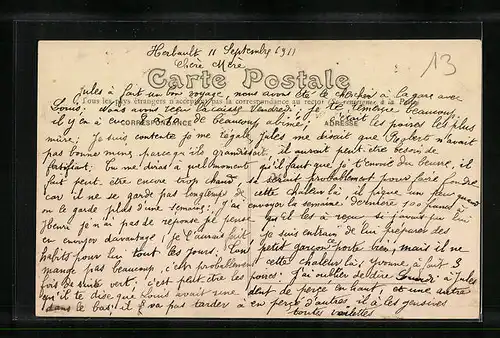 Herbault 11 Septembre 1911
13
Chère Mère
Carte Postale
Jules à fait un bon voyage, nous avons été le chercher à la gare avec
Tous les pays étrangers n'acceptent pas la correspondance au recto
Louis, nous avons reçu la caisse Vendredi, je te remercie beaucoup,
il y en a de beaucoup abîmé, les poires les plus
CORRESPONDANCE
ADRESSE
mûre, je suis contente je me régale, Jules me disait que Robert n'avait
pas bonne mine, parce qu'il grandissait, il aurait peut être besoin de
fortifiant, tu me diras à quel moment j'il faut que je t'envoie du beurre, il
fait peut être encore trop chaud, il se serait probablement pour faire fondre
car il ne se garde pas longtemps de cette chaleur là il pique un peu quand
on le garde plus d'une semaine, j'ai envoyer la semaine dernière 20 francs à
Henri je n'ai pas de réponse je pense qu'il les à reçu si j'avais pu lui
en envoyer davantage, je l'aurais fait, je suis entrain de lui préparer des
habits pour lui tout les jours, ton petit garçon se porte bien, mais il ne
mange pas beaucoup, c'est probablement cette chaleur là, Yvonne, à fait 3
fois de suite vert, c'est peut être les poires, j'ai oublier de dire à Jules
qu'il te dise que Louis avait une dent de percé en haut, et une autre
dans le bas, il va pas tarder à en percé d'autres, il à les gensives
toutes violettes